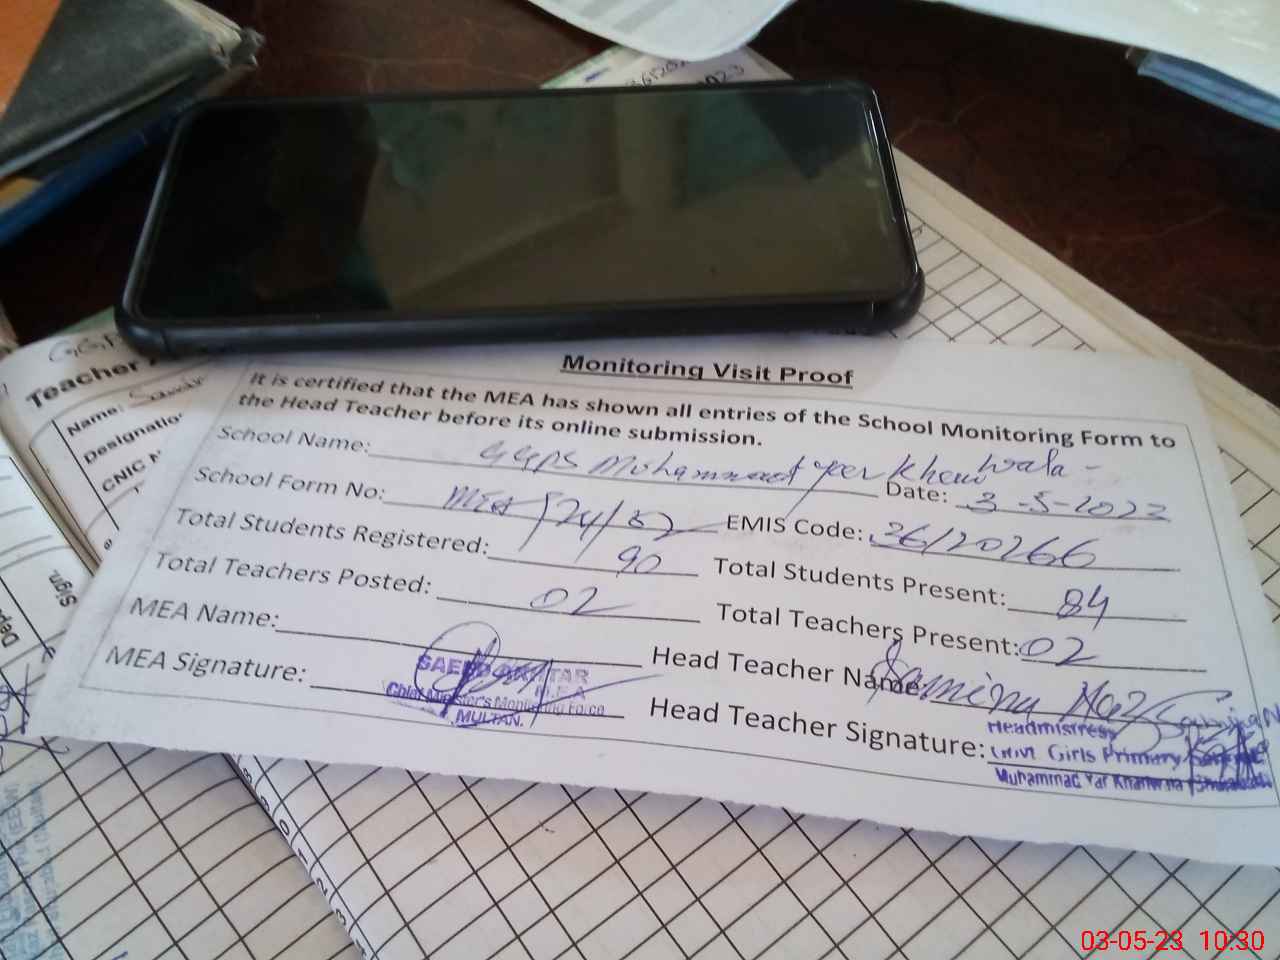 Monitoring Visit Proof
It is certified that the MEA has shown all entries of the School Monitoring Form to
the Head Teacher before its online submission.
School Name: GGPS Muhammad yar khan wala -
Date: 3-5-2023
School Form No: MEA
EMIS Code: 36120266
Total Students Registered: 90
Total Students Present: 84
Total Teachers Posted: 02
Total Teachers Present: 02
MEA Name:
Head Teacher Name Samina Naz
MEA Signature:
SAEED AKHTAR
M.E.A
Chief Minister's Monitoring Force
MULTAN.
Head Teacher Signature:
Headmistress
Girls Primary
Muhammad Yar
Teacher
Name:
Designatio
CNIC
Sign.
03-05-23 10:30